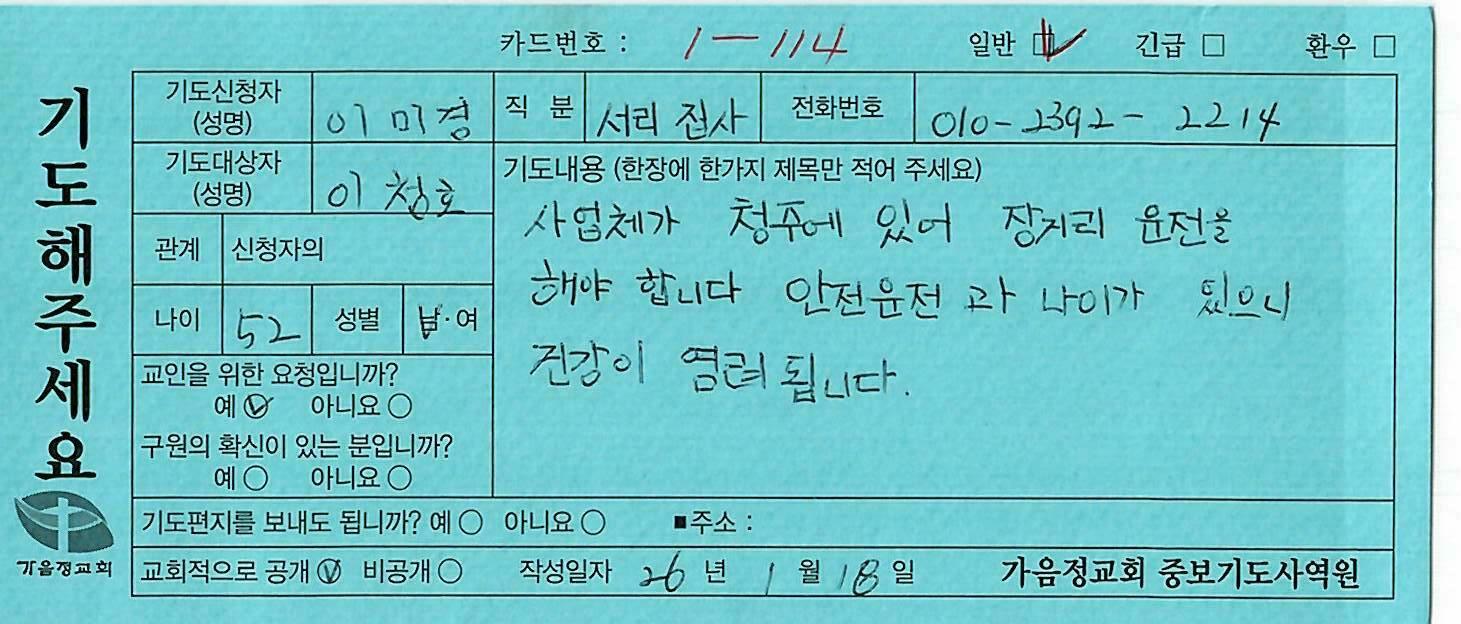 카드번호 : 1-114 일반 긴급 환우
기도해주세요
가음정교회
기도신청자 (성명) 이미경 직 분 서리 집사 전화번호 010-2392-2214
기도대상자 (성명) 이창호
관계 신청자의
나이 52 성별 남·여
교인을 위한 요청입니까?
예 아니요
구원의 확신이 있는 분입니까?
예 아니요
기도내용 (한장에 한가지 제목만 적어 주세요)
사업체가 청주에 있어 장거리 운전을
해야 합니다 안전운전 과 나이가 있으니
건강이 염려 됩니다.
기도편지를 보내도 됩니까? 예 아니요 ■주소 :
교회적으로 공개 비공개 작성일자 26 년 1 월 18 일 가음정교회 중보기도사역원